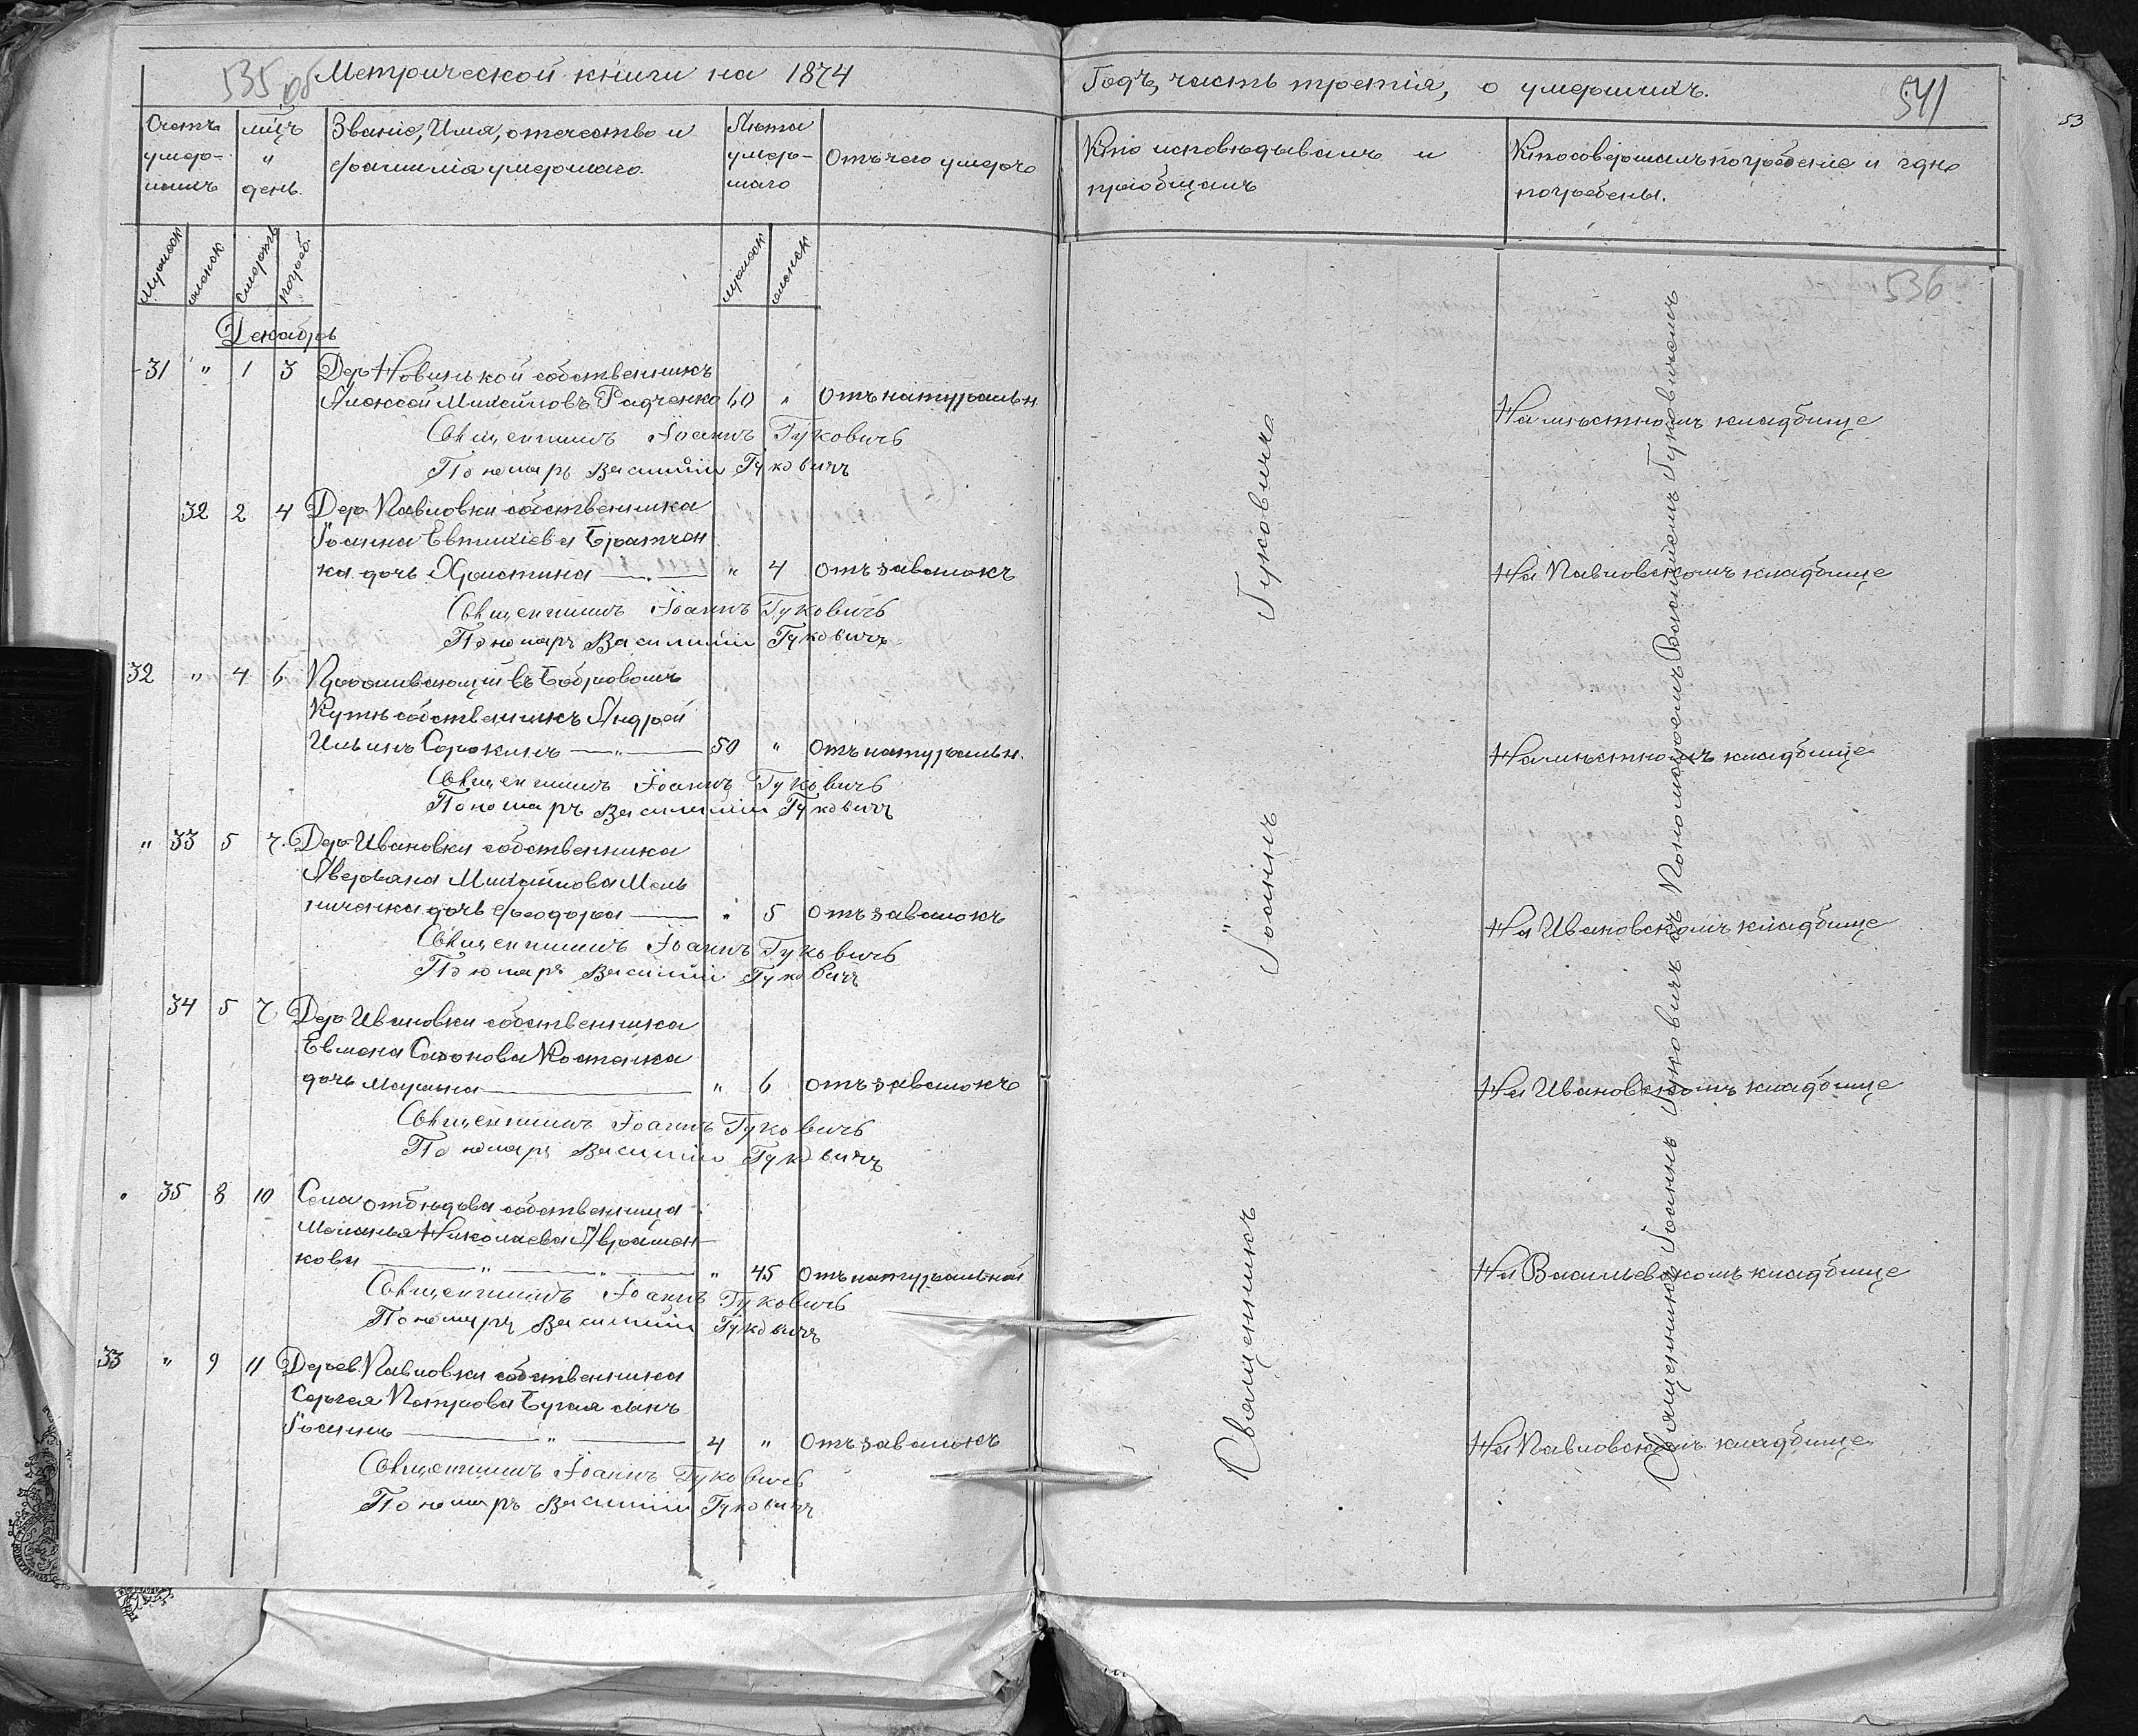 535 об Метрической книги на 1874
Годъ, часть третія, о умершихъ.
541
53
Счетъ умер-шихъ
мцъ " день.
Званіе, Имя, отечество и фамилія умершаго.
Лѣта умер-шаго
Отъ чего умеръ
Кто исповѣдывалъ и пріобщалъ
Кто совершалъ погребеніе и гдѣ погребены.
мужеск
женск
смерть
погреб.
мужеск
женск
536
Декабрь
31 " 1 3 Дер Новинькой собственникъ
Алексей Михайловъ Радченко 60 " Отъ натуральн.
На мѣстномъ кладбище
Священникъ Іоаннъ Гуковичъ
Пономарь Василий Гуковичъ
32 2 4 Дер Павловки собственника
Іоанна Евтихіева Братчен
ка дочь Христина " 4 Отъ завалокъ
На Павловскомъ кладбище
Священникъ Іоаннъ Гуковичъ
Пономарь Василий Гуковичъ
32 " 4 6 Проживающій въ Бобровомъ
Кутѣ собственникъ Андрей
Ильинъ Сорокинъ — " — 50 " Отъ натуральн.
На мѣстномъ кладбище
Священникъ Іоаннъ Гуковичъ
Пономарь Василий Гуковичъ
" 33 5 7. Дер Ивановки собственника
Аверьяна Михайлова Мель
ниченка дочь Феодора — " 5 отъ завалокъ
На Ивановскомъ кладбище
Священникъ Іоаннъ Гуковичъ
Пономарь Василий Гуковичъ
34 5 7 Дер Ивановки собственника
Евмена Сазонова Костенка
дочь Марина — " 6 отъ завалокъ
На Ивановскомъ кладбище
Священникъ Іоаннъ Гуковичъ
Пономарь Василий Гуковичъ
" 35 8 10 Села отбѣдова собственница
Меланья Николаева Аврамен-
кова — " — " — " 45 Отъ натуральной
На Васильевскомъ кладбище
Священникъ Іоаннъ Гуковичъ
Пономарь Василий Гуковичъ
33 " 9 11 Дерев. Павловки собственника
Сергея Петрова Бугая сынъ
Іоаннъ — " — 4 " Отъ завалокъ
На Павловскомъ кладбище
Священникъ Іоаннъ Гуковичъ
Пономарь Василий Гуковичъ
Священникъ Іоаннъ Гуковичъ
Священникъ Іоаннъ Гуковичъ съ Пономаремъ Василіемъ Гуковичемъ